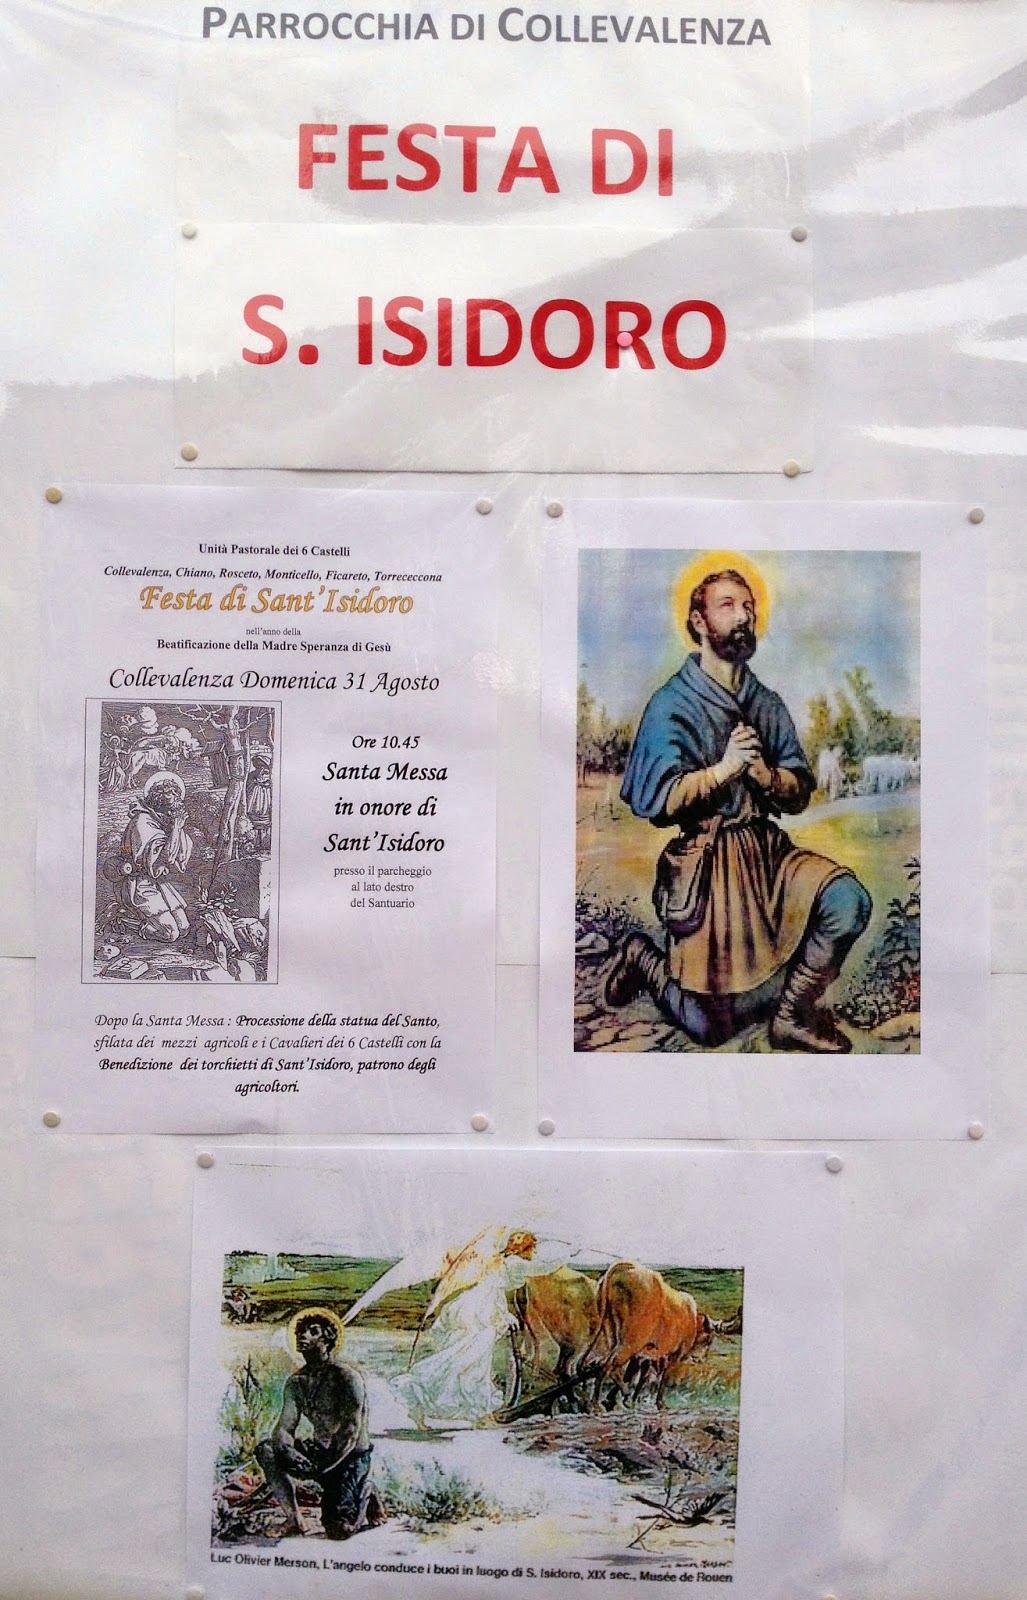 PARROCCHIA DI COLLEVALENZA
FESTA DI
S. ISIDORO
Unità Pastorale dei 6 Castelli
Collevalenza, Chiano, Rosceto, Monticello, Ficareto, Torrececcona
Festa di Sant'Isidoro
nell'anno della
Beatificazione della Madre Speranza di Gesù
Collevalenza Domenica 31 Agosto
Ore 10.45
Santa Messa
in onore di
Sant'Isidoro
presso il parcheggio
al lato destro
del Santuario
Dopo la Santa Messa : Processione della statua del Santo,
sfilata dei mezzi agricoli e i Cavalieri dei 6 Castelli con la
Benedizione dei torchietti di Sant'Isidoro, patrono degli
agricoltori.
Luc Olivier Merson, L'angelo conduce i buoi in luogo di S. Isidoro, XIX sec., Musée de Rouen